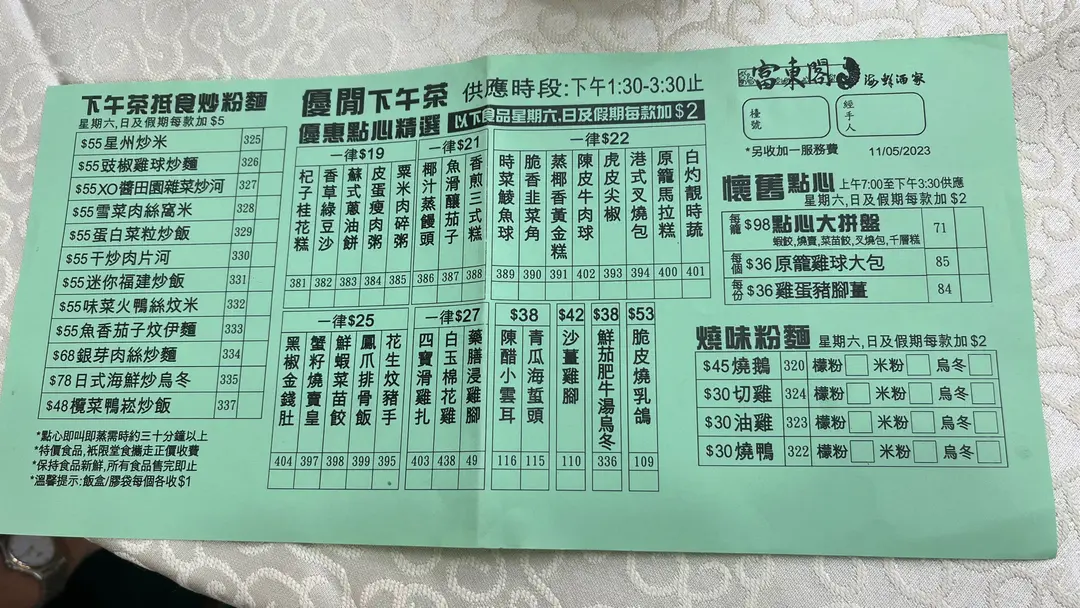 下午茶抵食炒粉麵
星期六,日及假期每款加$5
$55星州炒米 325
$55豉椒雞球炒麵 326
$55XO醬田園雜菜炒河 327
$55雪菜肉絲窩米 328
$55蛋白菜粒炒飯 329
$55干炒肉片河 330
$55迷你福建炒飯 331
$55味菜火鴨絲炆米 332
$55魚香茄子炆伊麵 333
$68銀芽肉絲炒麵 334
$78日式海鮮炒烏冬 335
$48欖菜鴨崧炒飯 337
*點心即叫即蒸需時約三十分鐘以上
*特價食品,衹限堂食攜走正價收費
*保持食品新鮮,所有食品售完即止
*溫馨提示:飯盒/膠袋每個各收$1
優閒下午茶 供應時段:下午1:30-3:30止
優惠點心精選 以下食品星期六.日及假期每款加$2
一律$19
杞子桂花糕 381
香草綠豆沙 382
蘇式蔥油餅 383
皮蛋瘦肉粥 384
粟米肉碎粥 385
一律$21
椰汁蒸饅頭 386
魚滑釀茄子 387
香煎三式糕 388
一律$22
時菜鯪魚球 389
脆香韮菜角 390
蒸椰香黃金糕 391
陳皮牛肉球 402
虎皮尖椒 393
港式叉燒包 394
原籠馬拉糕 400
白灼靚時蔬 401
一律$25
黑椒金錢肚 404
蟹籽燒賣皇 397
鮮蝦菜苗餃 398
鳳爪排骨飯 399
花生炆豬手 395
一律$27
四寶滑雞扎 403
白玉棉花雞 438
藥膳浸雞腳 49
$38
陳醋小雲耳 116
青瓜海蜇頭 115
$42
沙薑雞腳 110
$38
鮮茄肥牛湯烏冬 336
$53
脆皮燒乳鴿 109
富東閣 海鮮酒家
檯號
經手人
*另收加一服務費 11/05/2023
懷舊點心 上午7:00至下午3:30供應
星期六,日及假期每款加$2
每籠 $98點心大拼盤 71
蝦餃,燒賣,菜苗餃,叉燒包,千層糕
每個 $36原籠雞球大包 85
每份 $36雞蛋豬腳薑 84
燒味粉麵 星期六,日及假期每款加$2
$45燒鵝 320 檬粉 米粉 烏冬
$30切雞 324 檬粉 米粉 烏冬
$30油雞 323 檬粉 米粉 烏冬
$30燒鴨 322 檬粉 米粉 烏冬